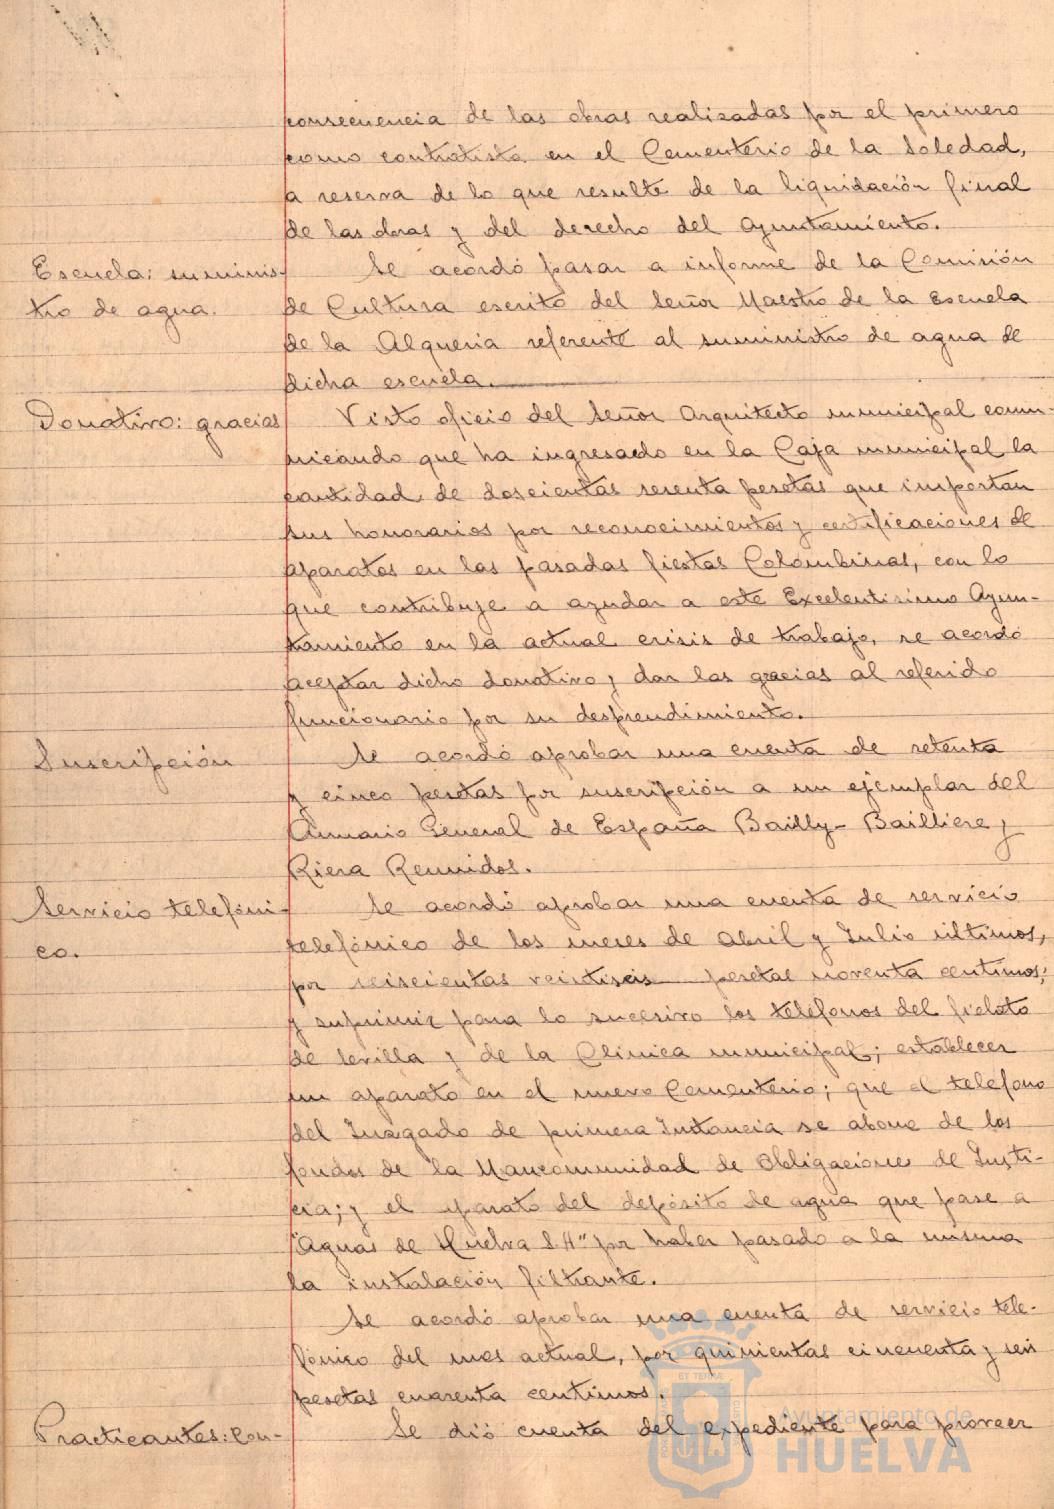 consecuencia de las obras realizadas por el primero
como contratista en el Cementerio de la Soledad,
a reserva de lo que resulte de la liquidación final
de las obras y del derecho del Ayuntamiento.
Escuela: suminis-
tro de agua.
Se acordó pasar a informe de la Comisión
de Cultura escrito del Señor Maestro de la Escuela
de la Alqueria referente al suministro de agua de
dicha escuela.
Donativo: gracias
Visto oficio del Señor Arquitecto municipal comu-
nicando que ha ingresado en la Caja municipal la
cantidad de doscientas sesenta pesetas que importan
sus honorarios por reconocimientos y certificaciones de
aparatos en las pasadas fiestas Colombinas, con lo
que contribuje a ayudar a este Excelentisimo Ayun-
tamiento en la actual crisis de trabajo, se acordó
aceptar dicho donativo y dar las gracias al referido
funcionario por su desprendimiento.
Suscripción
Se acordó aprobar una cuenta de setenta
y cinco pesetas por suscripción a un ejemplar del
Anuario General de España Bailly-Bailliere y
Riera Reunidos.
Servicio telefóni-
co.
Se acordó aprobar una cuenta de servicio
telefónico de los meses de Abril y Julio últimos,
por seiscientas veintiseis pesetas noventa centimos;
y suprimir para lo sucesivo los teléfonos del fielato
de Sevilla y de la Clinica municipal; establecer
un aparato en el nuevo Cementerio; que el teléfono
del Juzgado de primera Instancia se abone de los
fondos de la Mancomunidad de Obligaciones de Justi-
cia; y el aparato del depósito de agua que pase a
"Aguas de Huelva S.A" por haber pasado a la misma
la instalación filtrante.
Se acordó aprobar una cuenta de servicio tele-
fónico del mes actual, por quinientas cincuenta y seis
pesetas cuarenta centimos.
Practicantes: con-
Se dió cuenta del expediente para proveer
Ayuntamiento de
HUELVA